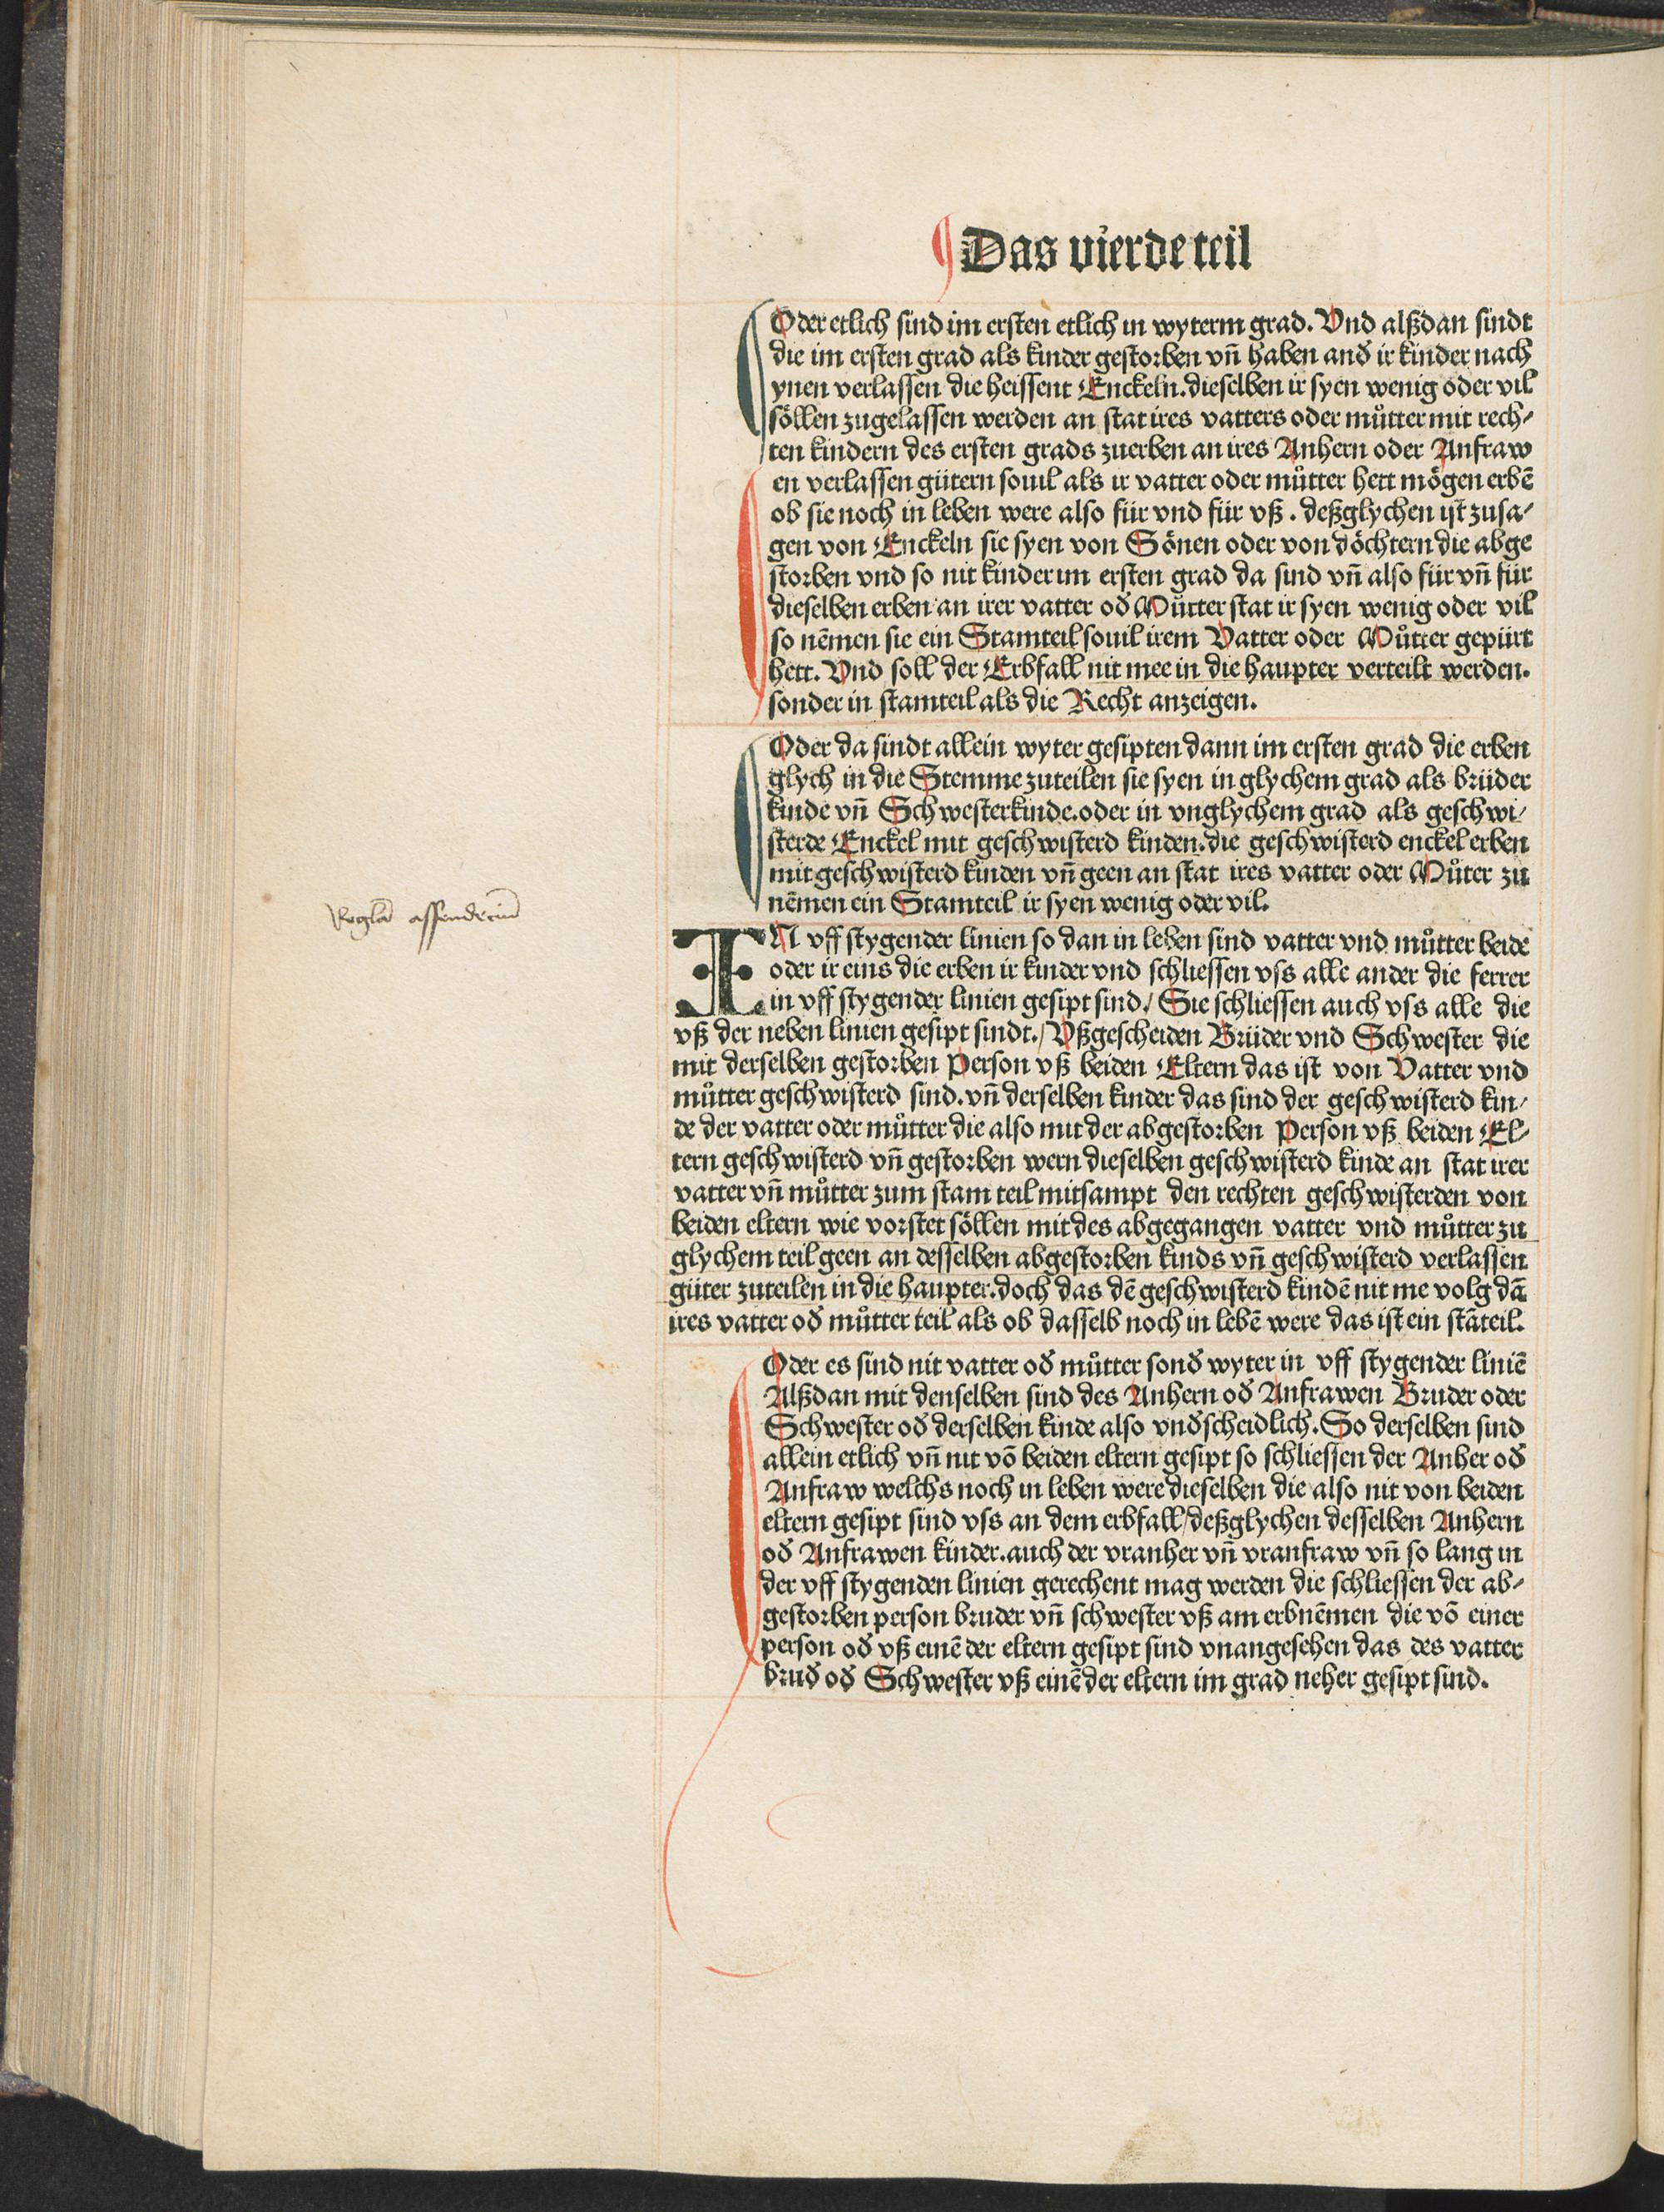 Das vierde teil
Oder etlich sind im ersten etlich in wyterm grad. Vnd alßdan sindt
die im ersten grad als kinder gestorben vñ haben and̛ ir kinder nach
ynen verlassen die heissent Enckeln. dieselben ir syen wenig oder vil
söllen zugelassen werden an stat ires vatters oder můtter mit rech-
ten kindern des ersten grads zuerben an ires Anhern oder Anfraw
en verlassen gütern souil als ir vatter oder můtter hett mögen erbē
ob sie noch in leben were also für vnd für vß. deßglychen ist zusa-
gen von Enckeln sie syen von Sönen oder von döchtern die abge
storben vnd so nit kinder im ersten grad da sind vñ also für vñ für
dieselben erben an irer vatter od̛ Můtter stat ir syen wenig oder vil
so nēmen sie ein Stamteil souil irem Vatter oder Můtter gepürt
hett. Vnd soll der Erbfall nit mee in die haupter verteilt werden.
sonder in stamteil als die Recht anzeigen.
Oder da sindt allein wyter gesipten dann im ersten grad die erben
glych in die Stemme zuteilen sie syen in glychem grad als brüder
kinde vñ Schwesterkinde. oder in vnglychem grad als geschwi-
sterde Enckel mit geschwisterd kinden. die geschwisterd enckel erben
mit geschwisterd kinden vñ geen an stat ires vatter oder Můter zu
nēmen ein Stamteil ir syen wenig oder vil.
IN vff stygender linien so dan in leben sind vatter vnd můtter beide
oder ir eins die erben ir kinder vnd schliessen vss alle ander die ferrer
in vff stygender linien gesipt sind / Sie schliessen auch vss alle die
vß der neben linien gesipt sindt. / Vßgescheiden Brüder vnd Schwester die
mit derselben gestorben Person vß beiden Eltern das ist von Vatter vnd
můtter geschwisterd sind. vñ derselben kinder das sind der geschwisterd kin-
de der vatter oder můtter die also mit der abgestorben Person vß beiden El-
tern geschwisterd vñ gestorben wern dieselben geschwisterd kinde an stat irer
vatter vñ můtter zum stam teil mitsampt den rechten geschwisterden von
beiden eltern wie vorstet söllen mit des abgegangen vatter vnd můtter zu
glychem teil geen an desselben abgestorben kinds vñ geschwisterd verlassen
güter zuteilen in die haupter. doch das dē geschwisterd kindē nit me volg dā
ires vatter od̛ můtter teil als ob dasselb noch in lebē were das ist ein stāteil.
Oder es sind nit vatter od̛ můtter sond̛ wyter in vff stygender liniē
Alßdan mit denselben sind des Anhern od̛ Anfrawen Bruder oder
Schwester od̛ derselben kinde also vnd̛scheidlich. So derselben sind
allein etlich vñ nit vō beiden eltern gesipt so schliessen der Anher od̛
Anfraw welchs noch in leben were dieselben die also nit von beiden
eltern gesipt sind vss an dem erbfall / deßglychen desselben Anhern
od̛ Anfrawen kinder. auch der vranher vñ vranfraw vñ so lang in
der vff stygenden linien gerechent mag werden die schliessen der ab-
gestorben person bruder vñ schwester vß am erbnēmen die vō einer
person od̛ vß einē der eltern gesipt sind vnangesehen das des vatter
brud̛ od̛ Schwester vß einē der eltern im grad neher gesipt sind.